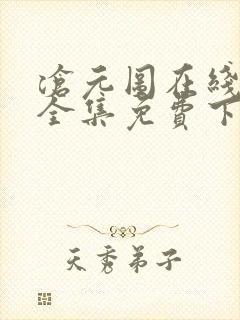 滄元图在线
全集免費下
天秀弟子